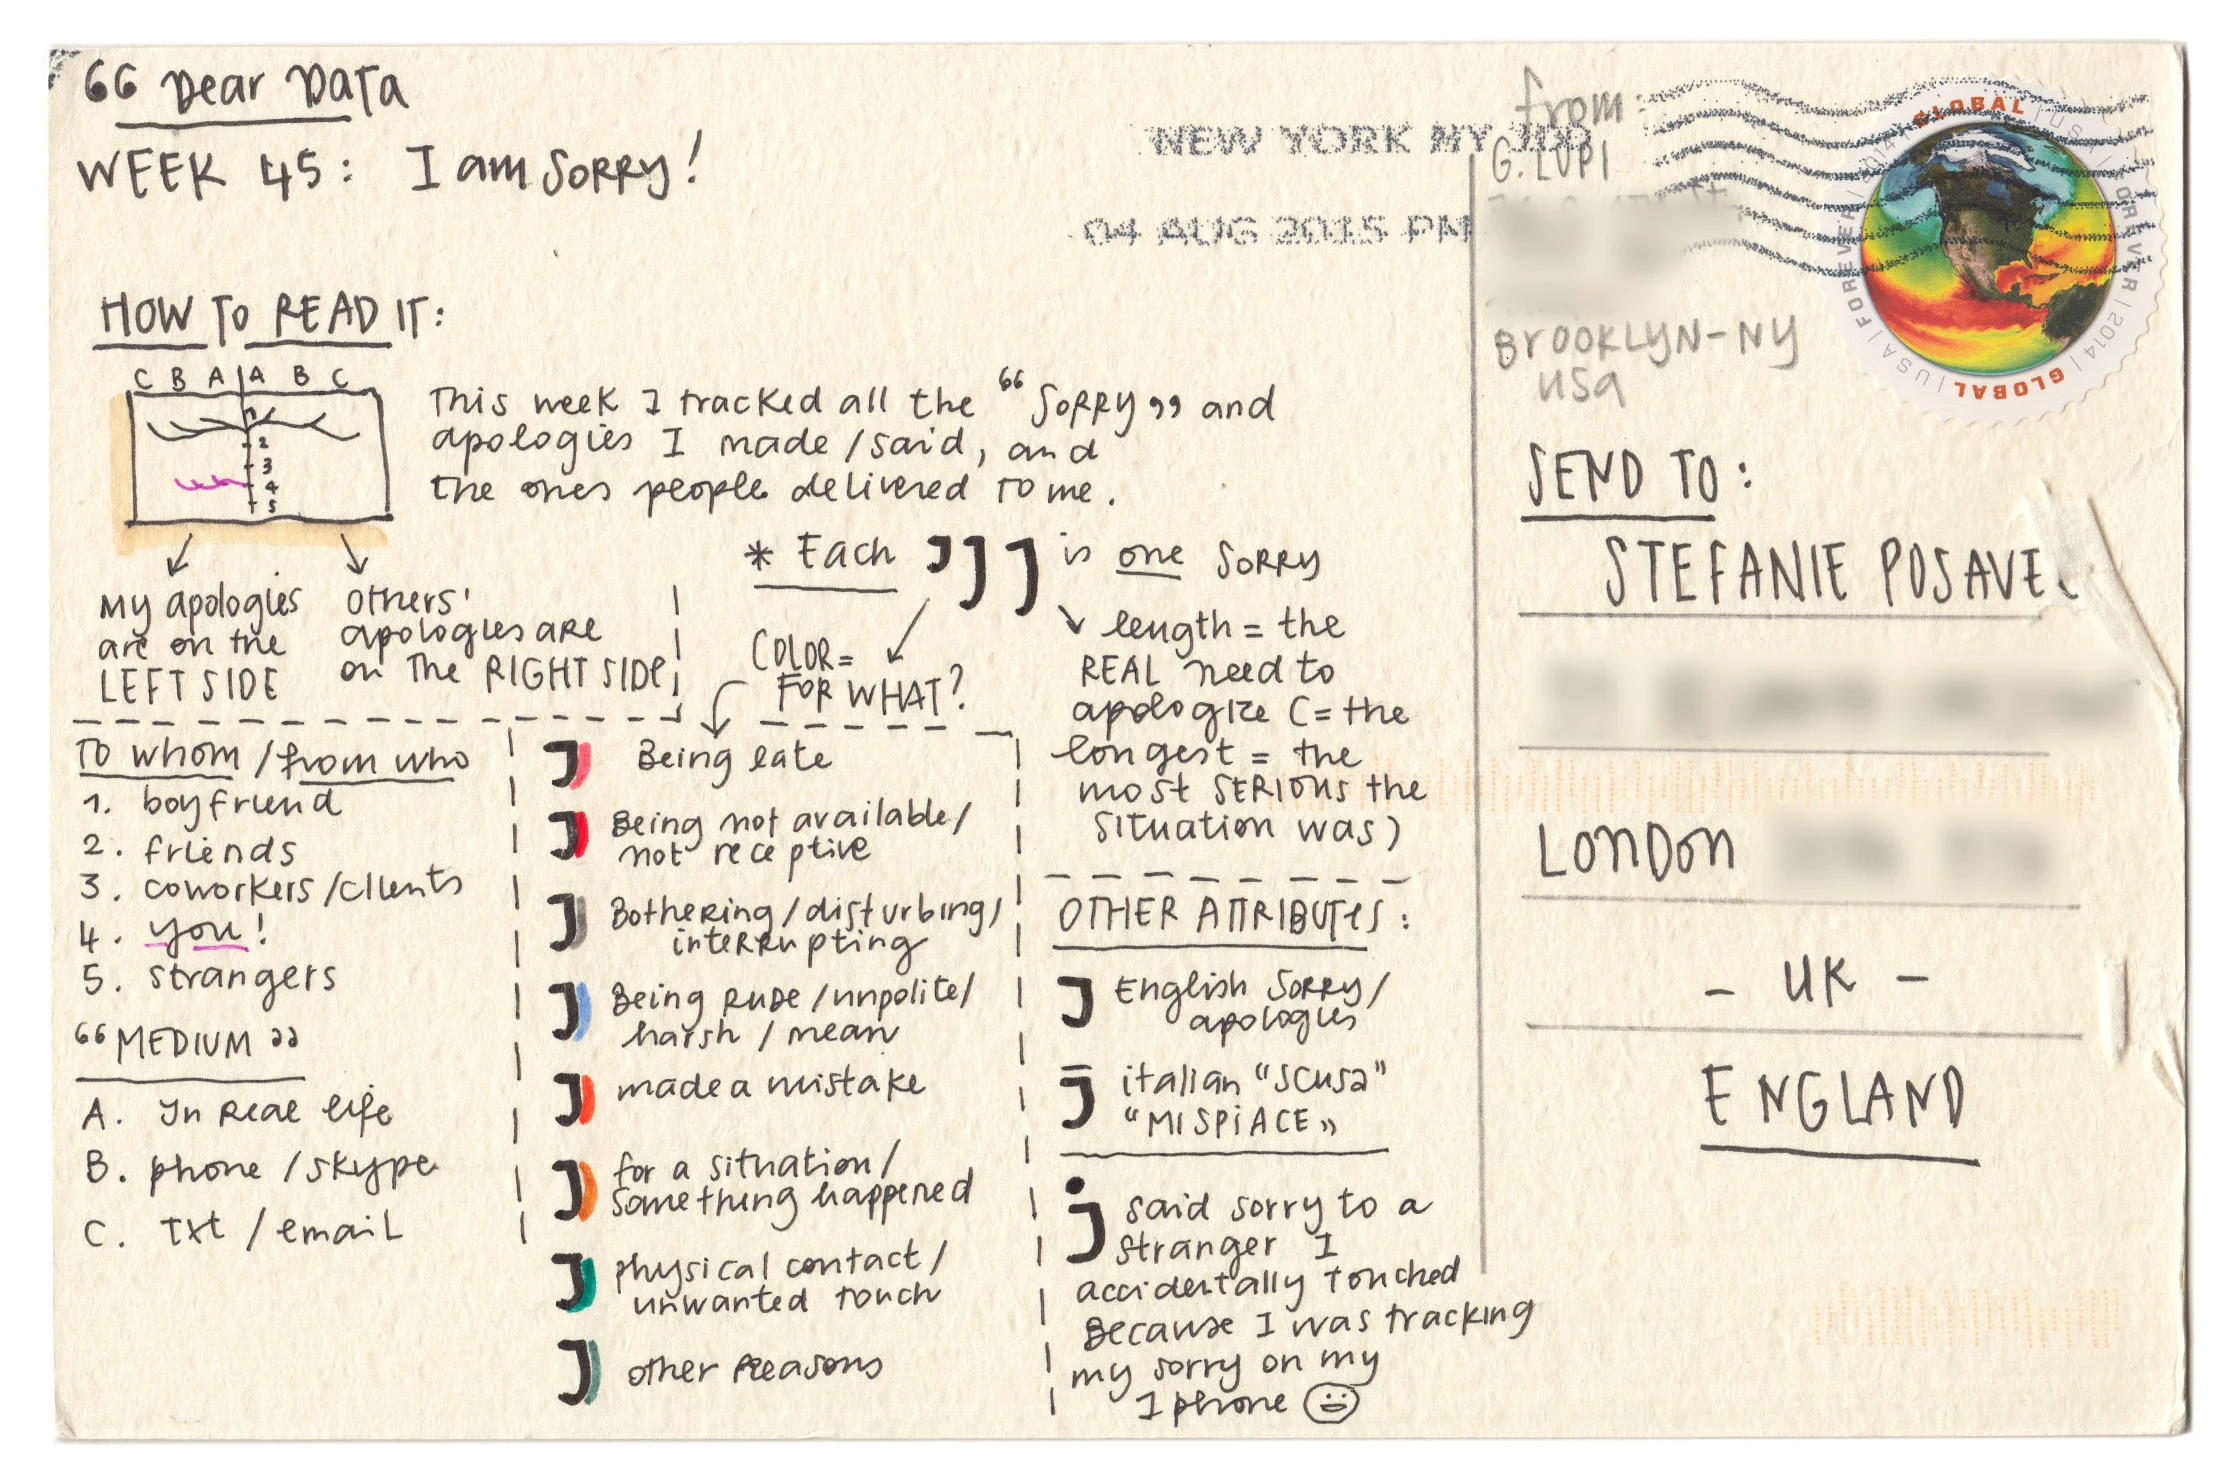 “ Dear Data
WEEK 45: I am SORRY!
HOW TO READ IT:
C B A A B C
1
2
3
4
5
This week I tracked all the “SORRY” and
apologies I made/said, and
the ones people delivered to me.
My apologies
are on the
LEFT SIDE
others'
apologies are
on the RIGHT SIDE
* Each J J J is one SORRY
COLOR=
FOR WHAT?
length = the
REAL need to
apologize (= the
longest = the
most SERIOUS the
situation was)
To whom / from who
1. boyfriend
2. friends
3. coworkers/clients
4. you!
5. strangers
“MEDIUM”
A. In Real life
B. phone/skype
C. Txt/email
Being late
Being not available/
not receptive
Bothering/disturbing/
interrupting
Being RUDE/unpolite/
harsh/mean
made a mistake
for a situation/
something happened
physical contact/
unwanted touch
other Reasons
OTHER ATTRIBUTES:
English SORRY/
apologies
italian “SCUSA”
“MISPIACE”
said sorry to a
stranger I
accidentally touched
Because I was tracking
my sorry on my
Iphone
NEW YORK NY
04 AUG 2015 PM
from:
G. LUPI
BROOKLYN-NY
USA
GLOBAL | USA | FOREVER | 2014 | GLOBAL | USA | FOREVER | 2014
SEND TO:
STEFANIE
LONDON
- UK -
ENGLAND